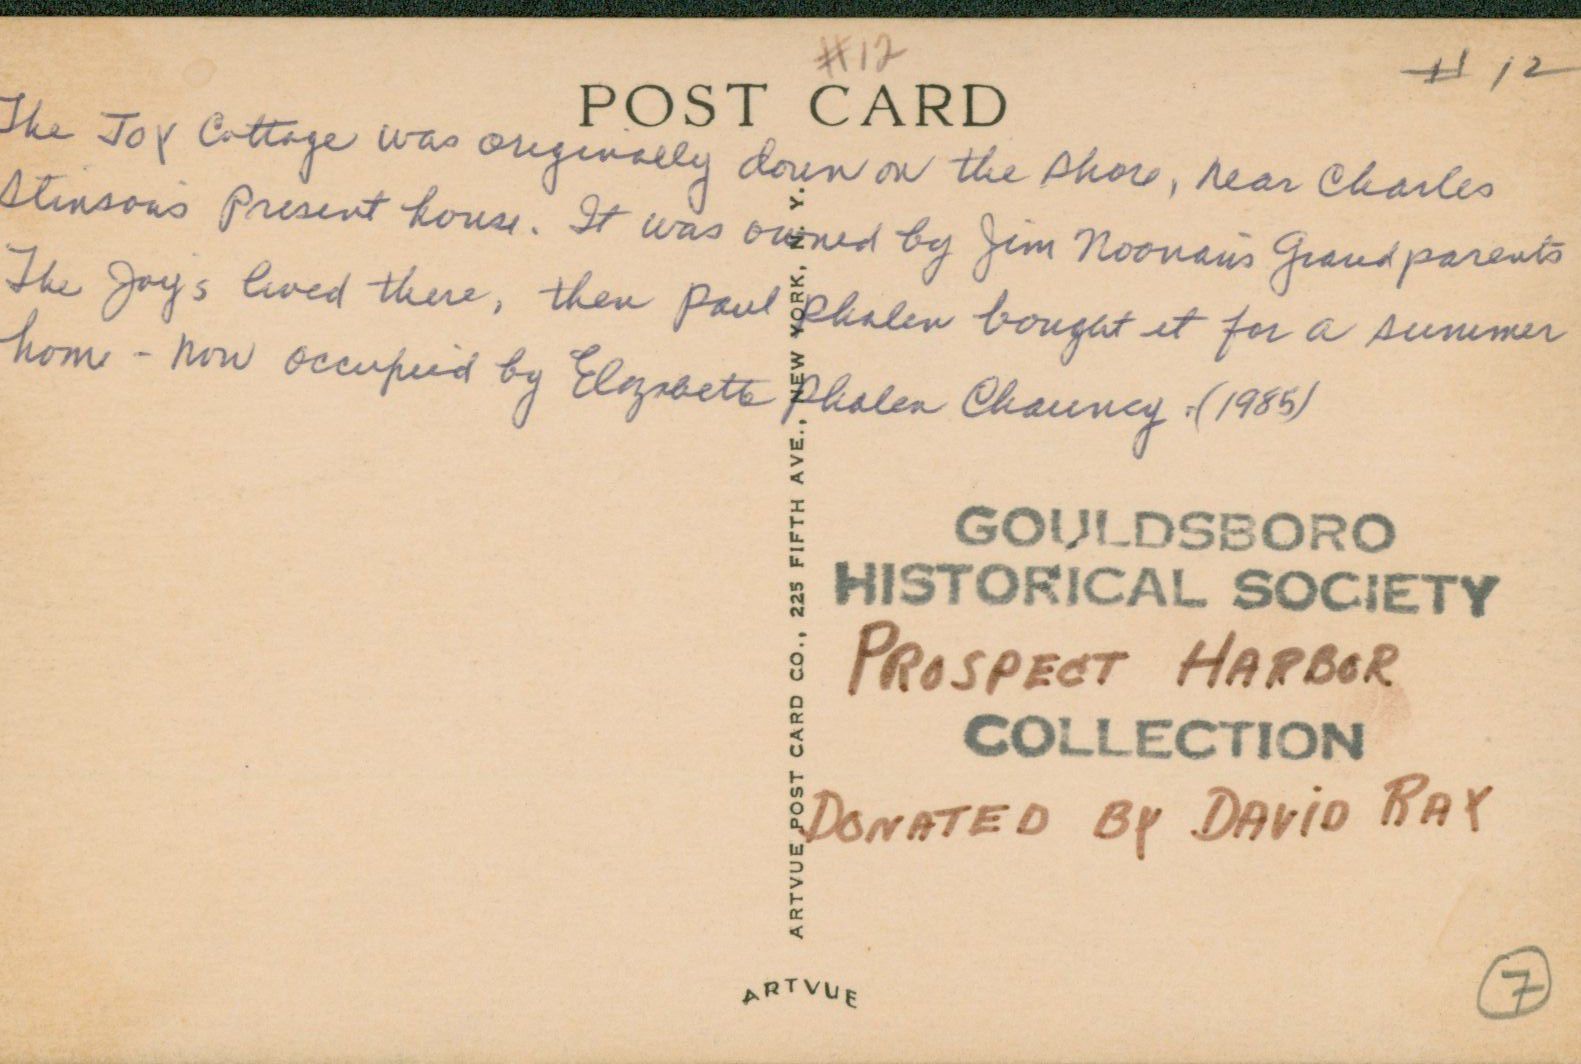 #12
# 12
POST CARD
The Joy Cottage was originally down on the shore, near Charles
Stinson's present house. It was owned by Jim Noonan's Grandparents
The Joy's lived there, then Paul Phalen bought it for a summer
home - now occupied by Elizabeth Phalen Chauncy. (1985)
ARTVUE POST CARD CO., 225 FIFTH AVE., NEW YORK, N. Y.
GOULDSBORO
HISTORICAL SOCIETY
PROSPECT HARBOR
COLLECTION
DONATED BY DAVID RAY
ARTVUE
7